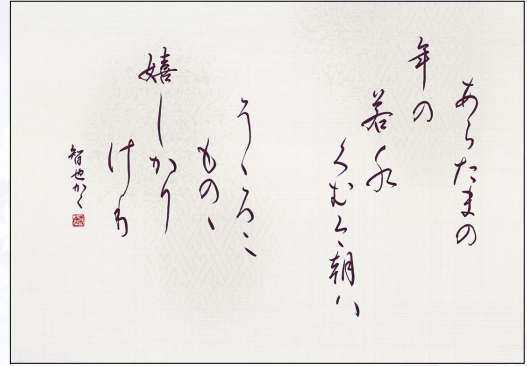 あらたまの
年の
若水
くむ今朝ハ
そゝろに
ものゝ
嬉しかり
けり
智也かく